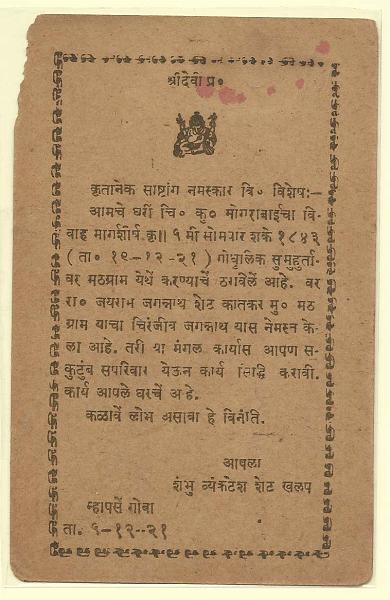 श्रीदेवी प्र०
कृतानेक साष्टांग नमस्कार वि० विशेषः—
आमचे घरीं चि० कु० मोगराबाईचा वि-
वाह मार्गशीर्ष कृ॥ ५ मी सोमवार शके १८४३
( ता० १९-१२-२१ ) गोधूलिक सुमुहुर्ता-
वर मठग्राम येथें करण्याचें ठरविलें आहे. वर
रा० जयराम जगन्नाथ शेट कातकर मु० मठ
ग्राम याचा चिरंजीव जगन्नाथ यास नेमस्त के-
ला आहे. तरी या मंगल कार्यास आपण स-
कुटुंब सपरिवार येऊन कार्य सिद्धि करावी.
कार्य आपले घरचें आहे.
कळावें लोभ असावा हे विनंति.
आपला
शंभु व्यंकटेश शेट खलप
म्हापसें गोवा
ता. ९-१२-२१